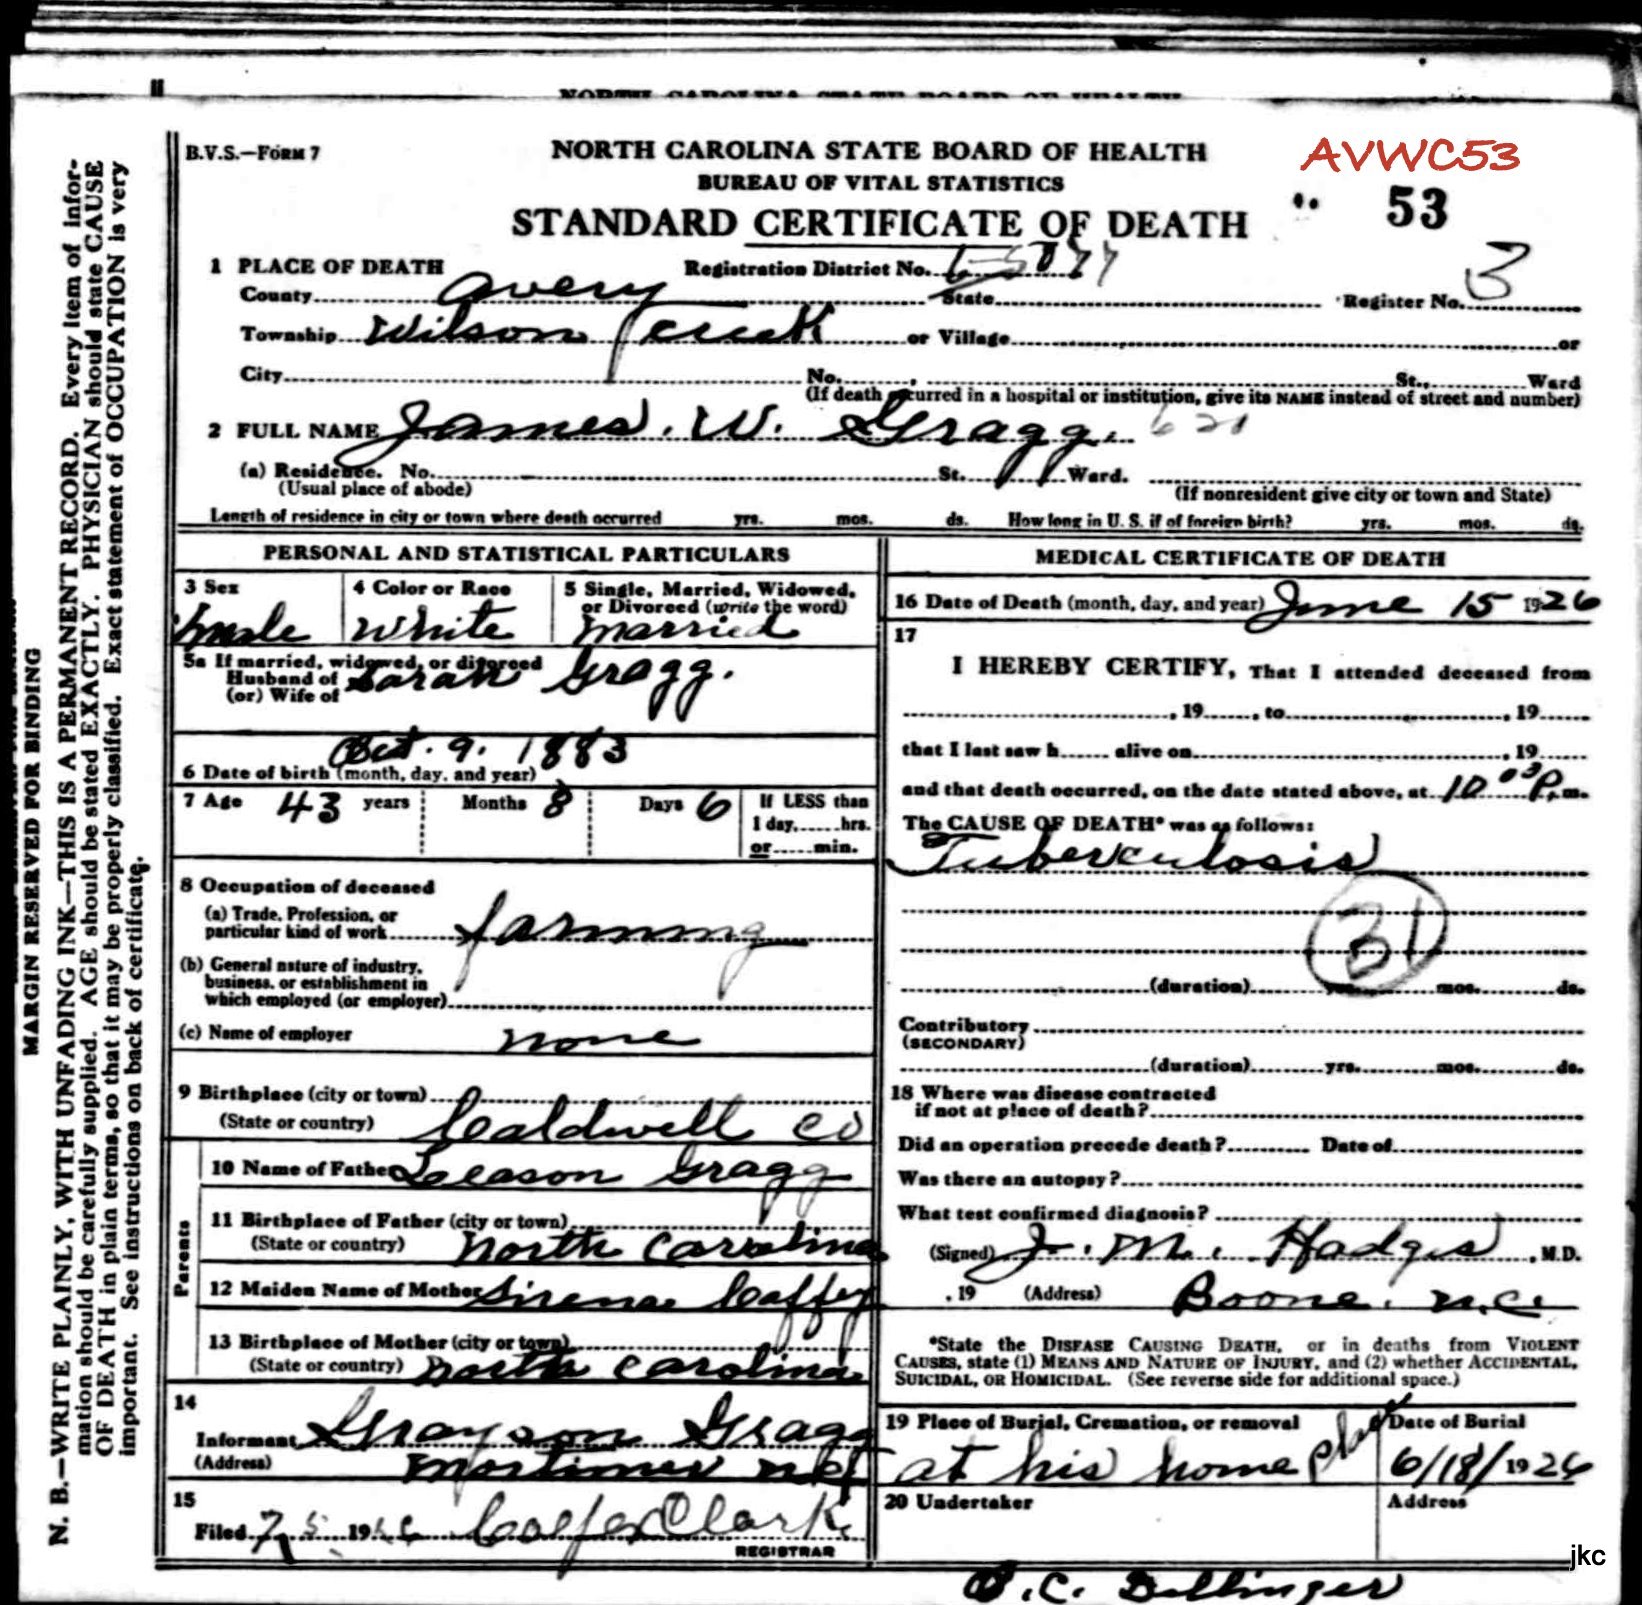 NORTH CAROLINA STATE BOARD OF HEALTH
B.V.S.—FORM 7
NORTH CAROLINA STATE BOARD OF HEALTH
AVWC53
BUREAU OF VITAL STATISTICS
53
STANDARD CERTIFICATE OF DEATH
1 PLACE OF DEATH Registration District No.
3
County Avery State Register No.
Township Wilson Creek or Village or
City No. St., Ward
(If death occurred in a hospital or institution, give its NAME instead of street and number)
2 FULL NAME James. W. Gragg. 621
(a) Residence. No. St. Ward.
(Usual place of abode) (If nonresident give city or town and State)
Length of residence in city or town where death occurred yrs. mos. ds. How long in U. S. if of foreign birth? yrs. mos. ds.
PERSONAL AND STATISTICAL PARTICULARS
3 Sex 4 Color or Race 5 Single, Married, Widowed,
or Divorced (write the word)
male White married
5a If married, widowed, or divorced
Husband of Sarah Gragg.
(or) Wife of
Oct. 9. 1883
6 Date of birth (month, day, and year)
7 Age 43 years Months 8 Days 6 If LESS than
1 day, hrs.
or min.
8 Occupation of deceased
(a) Trade, Profession, or
particular kind of work farming
(b) General nature of industry,
business, or establishment in
which employed (or employer)
(c) Name of employer none
9 Birthplace (city or town)
(State or country) Caldwell Co
Parents
10 Name of Father Leason Gragg
11 Birthplace of Father (city or town)
(State or country) North Carolina
12 Maiden Name of Mother Sirena Coffey
13 Birthplace of Mother (city or town)
(State or country) North Carolina
14
Informant Grayson Gragg
(Address) Mortimer N.C.
15
Filed 7 5 1926 Coffey Clark
REGISTRAR
MEDICAL CERTIFICATE OF DEATH
16 Date of Death (month, day, and year) June 15 1926
17
I HEREBY CERTIFY, That I attended deceased from
, 19 , to , 19
that I last saw h alive on , 19
and that death occurred, on the date stated above, at 10 P.m.
The CAUSE OF DEATH* was as follows:
Tuberculosis
31
(duration) yrs. mos. ds.
Contributory
(SECONDARY)
(duration) yrs. mos. ds.
18 Where was disease contracted
if not at place of death?
Did an operation precede death? Date of
Was there an autopsy?
What test confirmed diagnosis?
(Signed) J. M. Hodges , M.D.
, 19 (Address) Boone. N.C.
*State the DISEASE CAUSING DEATH, or in deaths from VIOLENT
CAUSES, state (1) MEANS AND NATURE OF INJURY, and (2) whether ACCIDENTAL,
SUICIDAL, OR HOMICIDAL. (See reverse side for additional space.)
19 Place of Burial, Cremation, or removal Date of Burial
at his home place 6/18/1926
20 Undertaker Address
B.C. Dellinger
jkc
MARGIN RESERVED FOR BINDING
N. B.—WRITE PLAINLY, WITH UNFADING INK—THIS IS A PERMANENT RECORD. Every item of infor-
mation should be carefully supplied. AGE should be stated EXACTLY. PHYSICIAN should state CAUSE
OF DEATH in plain terms, so that it may be properly classified. Exact statement of OCCUPATION is very
important. See instructions on back of certificate.